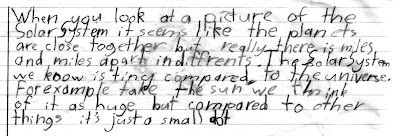 When you look at a picture of the
Solar system it seems like the planets
are close together but really there is miles
and miles apart indiffrents. The solar system
we know is tiny compared to the universe.
For example take the sun we think
of it as huge but compared to other
things it's just a small dot